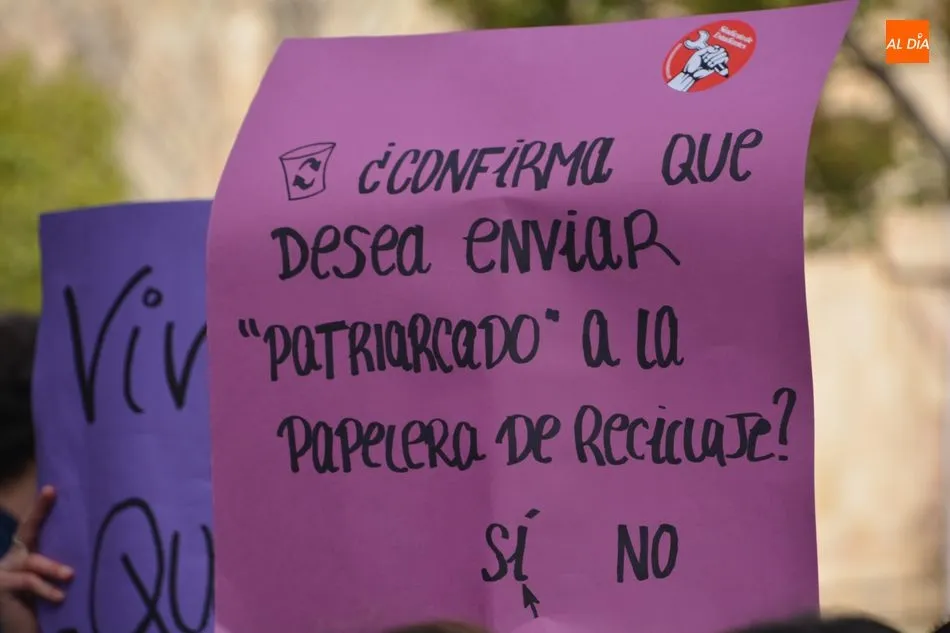 AL DÍA
Sindicato de
Estudiantes
¿CONFIRMA QUE
DESEA ENVIAR
"PATRIARCADO" A LA
PAPELERA DE RECICLAJE?
SÍ NO
Viv
QU